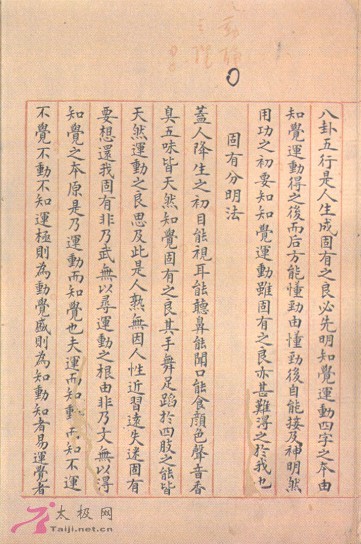 八卦五行是人生成固有之良必先明知覺運動四字之本由
知覺運動得之後而后方能懂勁由懂勁後自能接及神明然
用功之初要知知覺運動雖固有之良亦甚難得之於我也
固有分明法
蓋人降生之初目能視耳能聽鼻能聞口能食顏色聲音香
臭五味皆天然知覺固有之良其手舞足蹈於四肢之能皆
天然運動之良思及此是人孰無因人性近習遠失迷固有
要想還我固有非乃武無以尋運動之根由非乃文無以得
知覺之本原是乃運動而知覺也夫運而知動而知不運
不覺不動不知運極則為動覺盛則為知動知者易運覺者
太极网
Taiji.net.cn